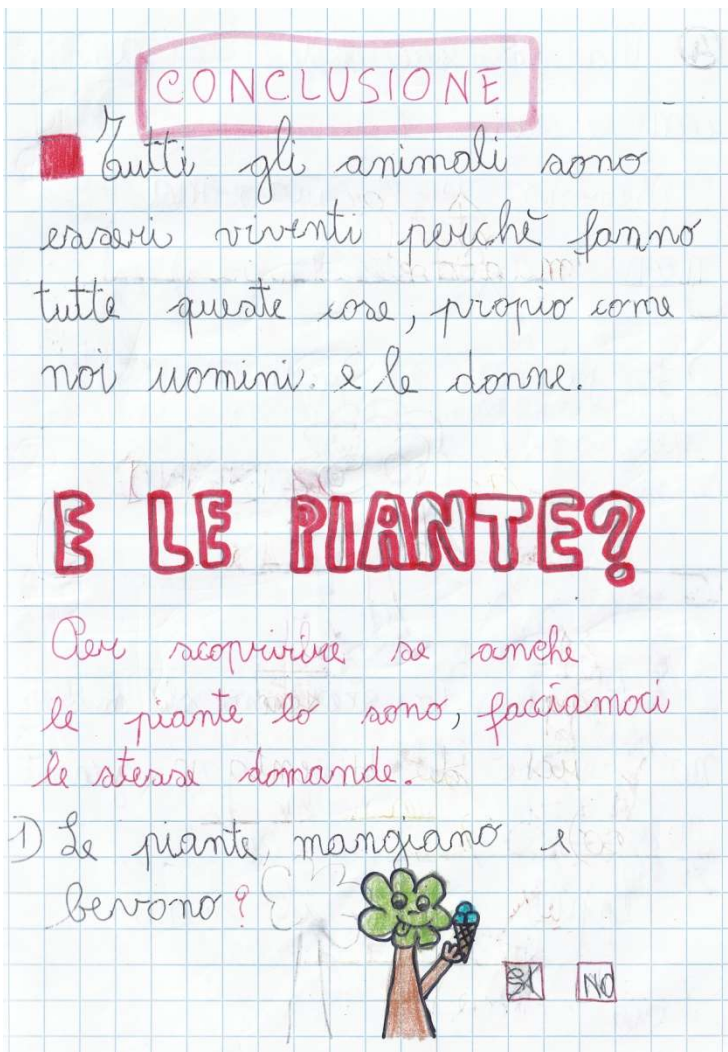 CONCLUSIONE
Tutti gli animali sono
esseri viventi perchè fanno
tutte queste cose, propio come
noi uomini. e le donne.
E LE PIANTE?
Per scopririre se anche
le piante lo sono, facciamoci
le stesse domande.
1) Le piante mangiano e
bevono?
SI NO